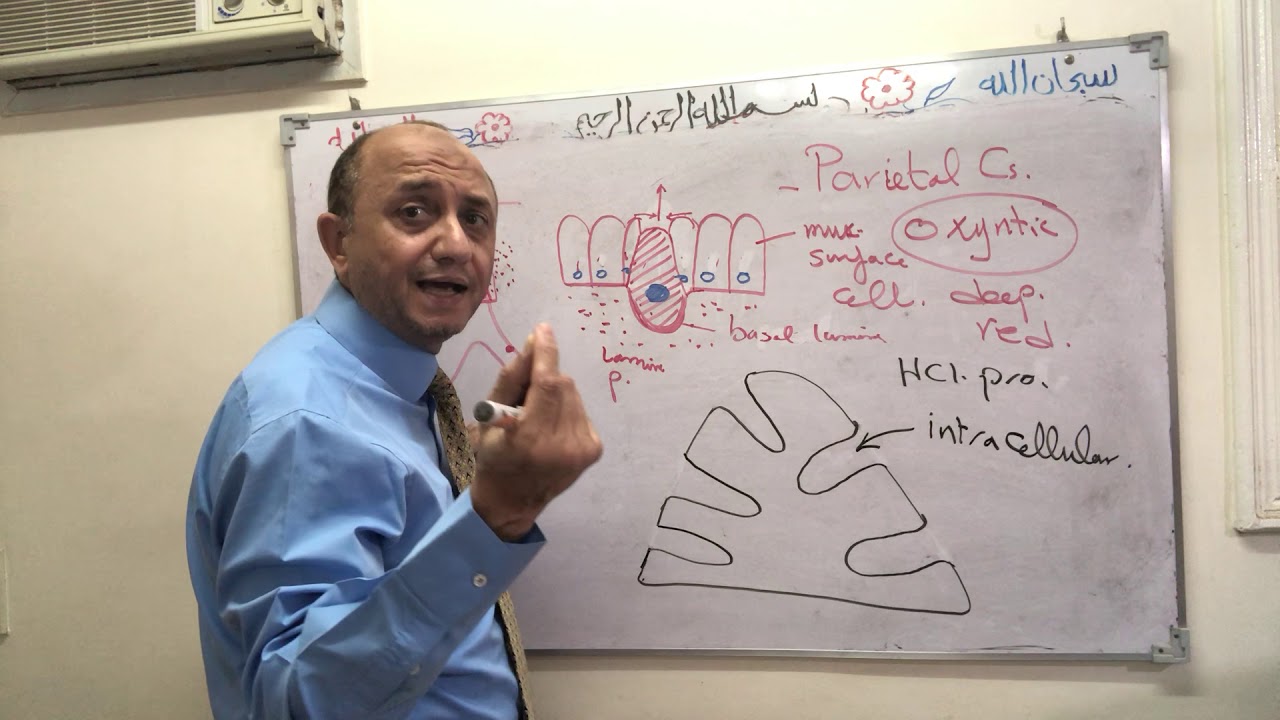 سبحان الله
بسم الله الرحمن الرحيم
- Parietal Cs.
Oxyntic
muc.
surface
cell.
deep.
red.
basal lamina
Lamina
p.
HCl. pro.
intracellular.